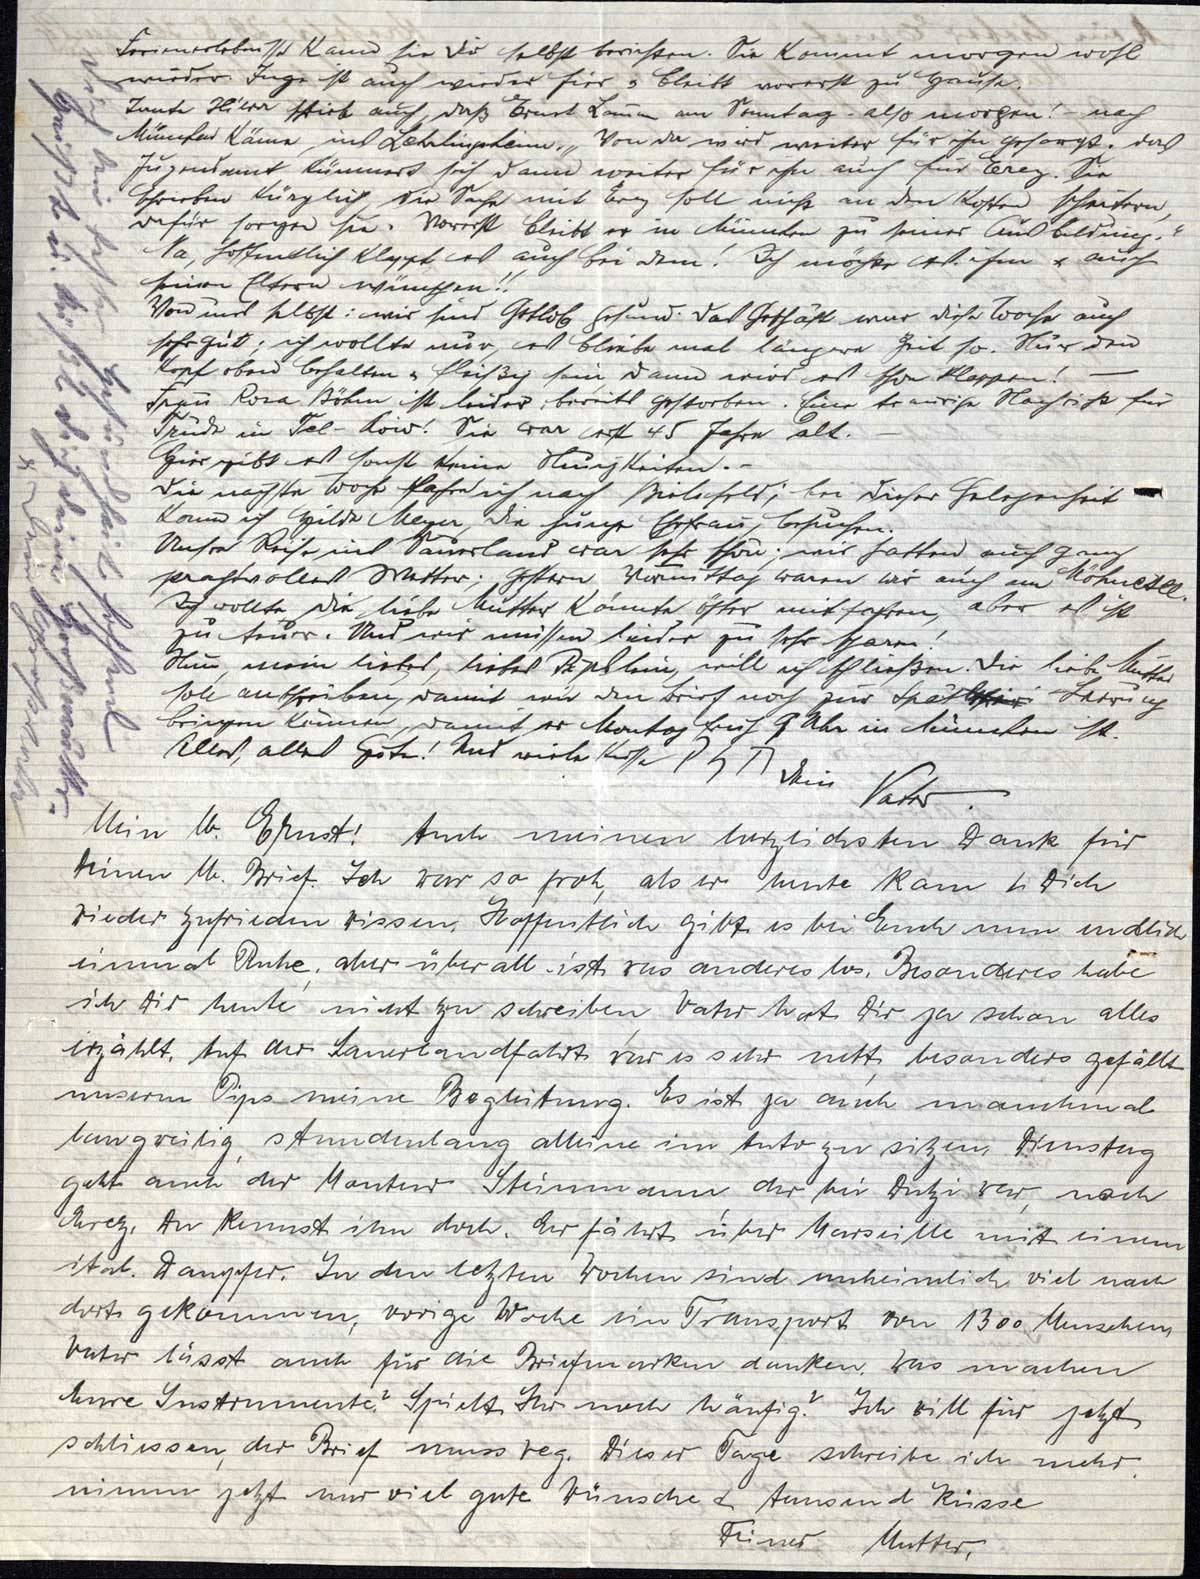 Ferienerlebnisse kann sie Dir selbst berichten. Sie kommt morgen wohl
wieder. Inge ist auch wieder hier & bleibt vorerst zu Hause.
Tante Hilda schrieb auch, daß Ernst am Sonntag - also morgen! - nach
München käme, ins Lehrlingsheim. „Von da wird weiter für ihn gesorgt. das
Jugendamt kümmert sich dann weiter für ihn auch für Erez. Sie
schrieben kürzlich, die Sache mit Erez soll nicht an den Kosten scheitern,
dafür sorgen sie. Vorerst bleibt er in München zu seiner Ausbildung."
Na, hoffentlich klappt es auch bei dem! Ich möchte es ihm & auch
seinen Eltern wünschen!!
Von uns selbst: wir sind Gottlob gesund. Das Geschäft war diese Woche auch
sehr gut; ich wollte nur, es bliebe mal längere Zeit so. Nur den
Kopf oben behalten & fleißig sein dann wird es schon klappen! —
Frau Rosa Böhm ist leider bereits gestorben. Eine traurige Nachricht für
Trude in Tel-Awiw! Sie war erst 45 Jahre alt.
Hier gibt es sonst keine Neuigkeiten. -
Die nächste Woche fahre ich nach Bielefeld; bei dieser Gelegenheit
kann ich Hilde Meyer, die junge Ehefrau, besuchen.
Unsere Reise ins Sauerland war sehr schön; wir hatten auch ganz
prachtvolles Wetter; gestern Vormittag waren wir auch am Möhnesee.
Ich wollte, die liebe Mutter könnte öfter mitfahren, aber es ist
zu teuer. Und wir müssen leider zu sehr sparen!
Nun, mein lieber, lieber will ich schließen. Die liebe Mutter
soll anschreiben, damit wir den Brief noch zur Spät Leerung
bringen können, damit er Montag früh 9 Uhr in München ist.
Alles, alles Gute! Und viele Küsse Dein
Vater.
Mein lb. Ernst! Auch meinen herzlichsten Dank für
Deinen lb. Brief. Ich war so froh, als er heute kam & Dich
wieder zufrieden wissen. Hoffentlich gibt es bei Euch nun endlich
einmal Ruhe, aber überall ist was anderes los. Besonderes habe
ich Dir heute nicht zu schreiben, Vater hat Dir ja schon alles
erzählt. Auf der Sauerlandfahrt war es sehr nett, besonders gefällt
unserm Pips meine Begleitung. Es ist ja auch manchmal
langweilig, stundenlang alleine im Auto zu sitzen. Dienstag
geht auch der Monteur Steinmann der bei war, nach
Erez. Du kennst ihn doch. Er fährt über Marseille mit einem
ital. Dampfer. In den letzten Wochen sind unheimlich viel nach
dort gekommen, vorige Woche ein Transport von 1300 Menschen.
Vater lässt auch für die Briefmarken danken. Was machen
Eure Instrumente? Spielt Ihr noch häufig? Ich will für jetzt
schliessen, der Brief muss weg. Dieser Tage schreibe ich mehr,
nimm jetzt nur viel gute Wünsche & tausend Küsse
Deiner Mutter.